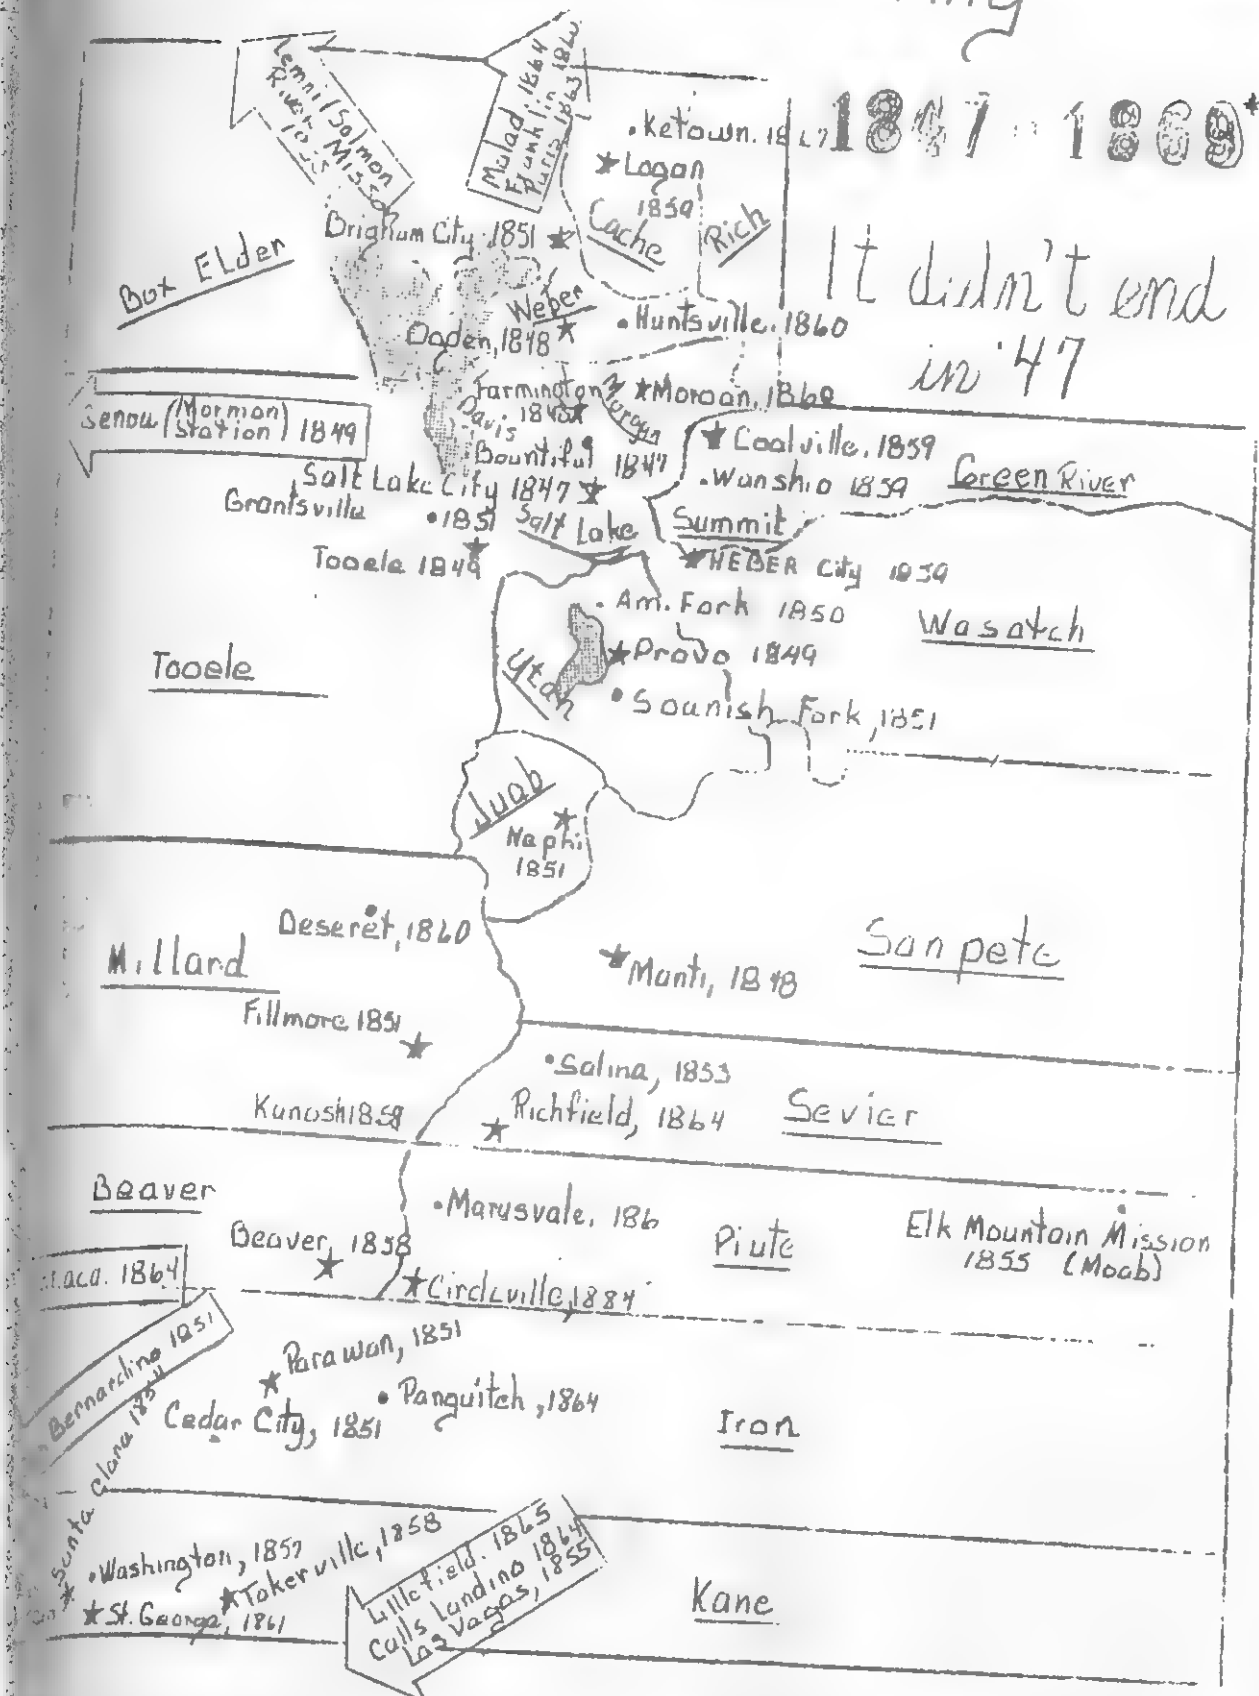 1847 - 1869*
It didn't end
in '47
Lemhi/Salmon
River Mission
Malad 1864
Franklin 1860
Paris 1863
• Ketown. 1867
Logan
1859
Cache
Rich
Brigham City 1851
Box Elder
Weber
Ogden, 1848
• Huntsville. 1860
Farmington
1848
Morgan
Morgan, 1860
Davis
Genoa (Mormon
Station) 1849
Bountiful 1847
Coalville. 1859
• Wanship 1859
Green River
Salt Lake City 1847
Grantsville
• 1851
Salt Lake
Summit
Tooele 1849
HEBER City 1859
• Am. Fork 1850
Wasatch
Provo 1849
Tooele
Utah
• Spanish Fork, 1851
Juab
Nephi
1851
Deseret, 1860
Millard
Sanpete
Manti, 1848
Fillmore 1851
• Salina, 1853
Richfield, 1864
Sevier
Kanosh 1859
Beaver
• Marysvale. 186
Piute
Elk Mountain Mission
1855 (Moab)
Beaver, 1858
aca. 1864
Circleville, 1884
Bernardino 1851
Parawan, 1851
• Panguitch, 1864
Cedar City, 1851
Iron
Santa Clara 1854
• Washington, 1857
Tokerville, 1858
St. George, 1861
Littlefield. 1865
Calls Landing 1864
Las Vagas, 1855
Kane